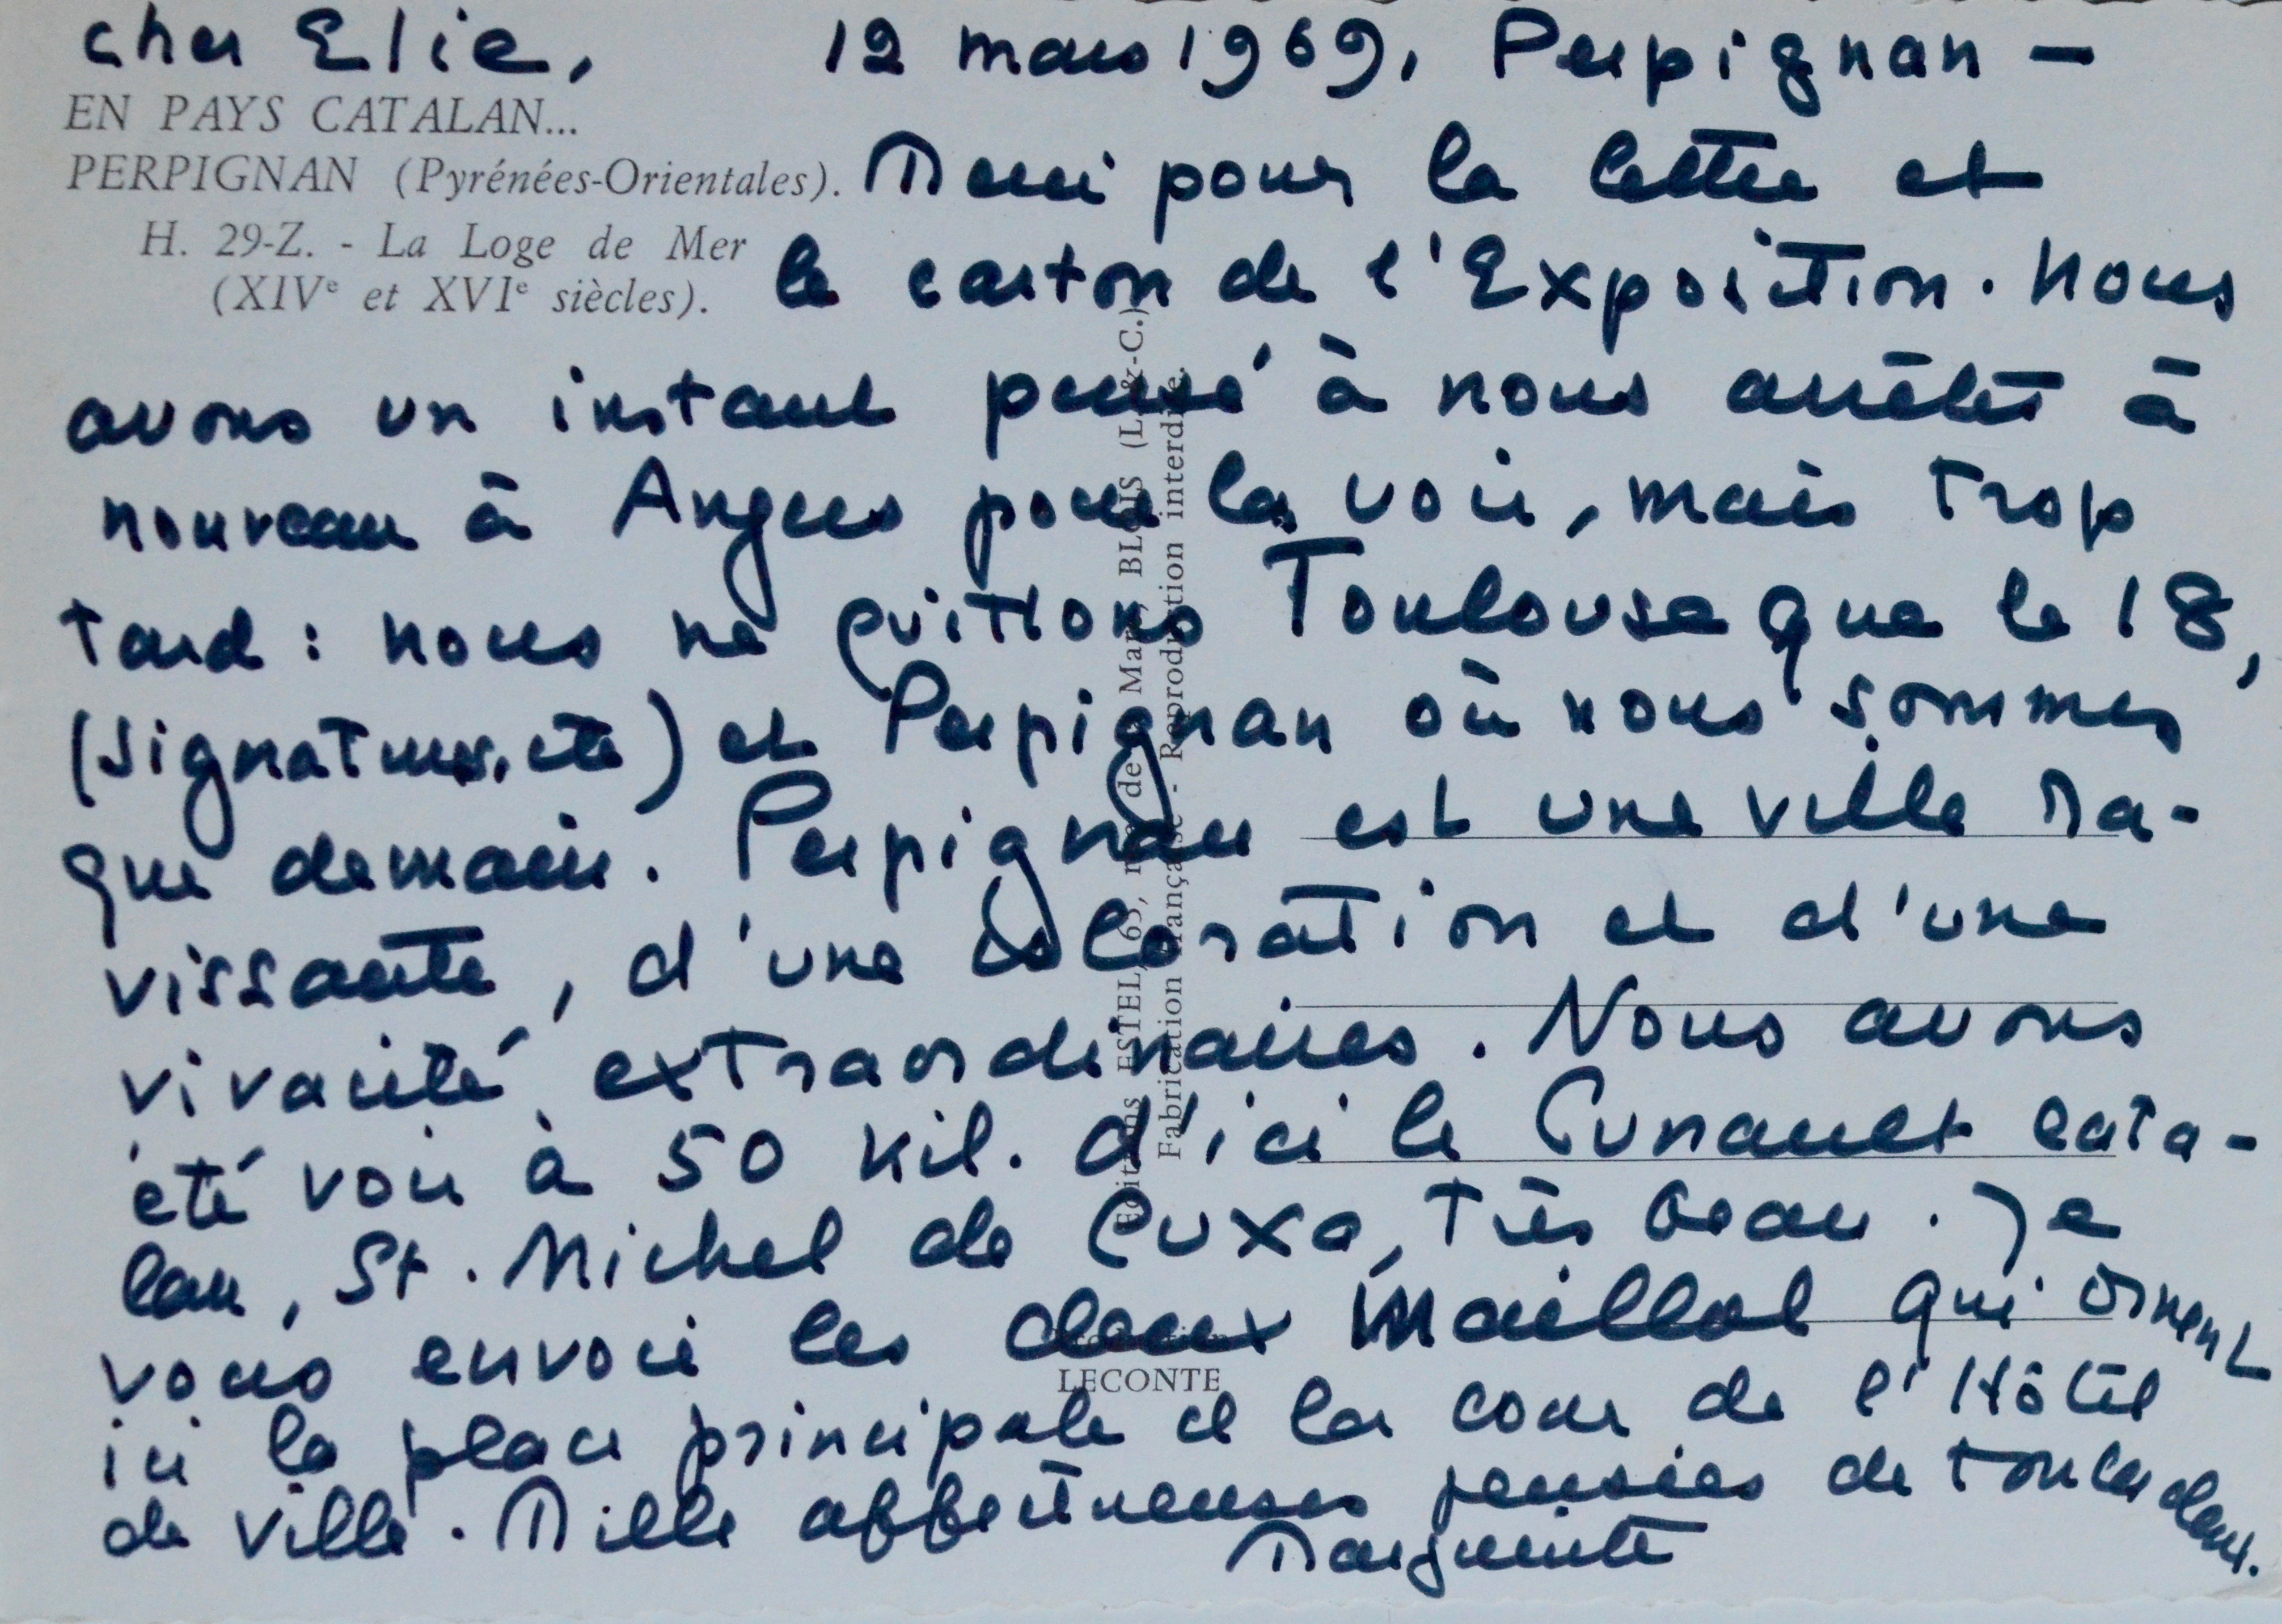 cher Elie, 12 mars 1969, Perpignan –
EN PAYS CATALAN...
PERPIGNAN (Pyrénées-Orientales). Merci pour la lettre et
H. 29-Z. - La Loge de Mer
(XIVe et XVIe siècles). le carton de l'Exposition. Nous
avons un instant pensé à nous arrêter à
nouveau à Angers pour la voir, mais trop
tard : nous ne quittons Toulouse que le 18,
(signatures, etc) et Perpignan où nous sommes
que demain. Perpignan est une ville ra-
vissante, d'une coloration et d'une
vivacité extraordinaires. Nous avons
été voir à 50 kil. d'ici le Cunault cata-
lan, St. Michel de Cuxa, très beau. Je
vous envoie les deux Maillol qui ornent
ici la place principale et la cour de l'Hôtel
de ville. Mille affectueuses pensées de tous les deux.
Marguerite
Editions ESTEL, 63, rue de la Mare, BLOIS (L.-&-C.)
Fabrication française - Reproduction interdite.
LECONTE